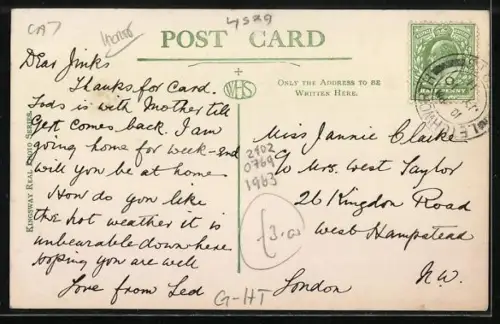 CA7
4529
POST CARD
WHS
ONLY THE ADDRESS TO BE
WRITTEN HERE.
HALF PENNY
KINGSWAY REAL PHOTO SERIES.
Dear Jinks
Thanks for card.
is with Mother till
Gert comes back. I am
going home for week-end
will you be at home
How do you like
the hot weather it is
unbearable down here
hoping you are well
Love from Ted
Miss Jannie Clarke
c/o Mrs. West Taylor
26 Kingdon Road
West Hampstead
London N.W.
2402
0769
1963
£3.00
G-HT